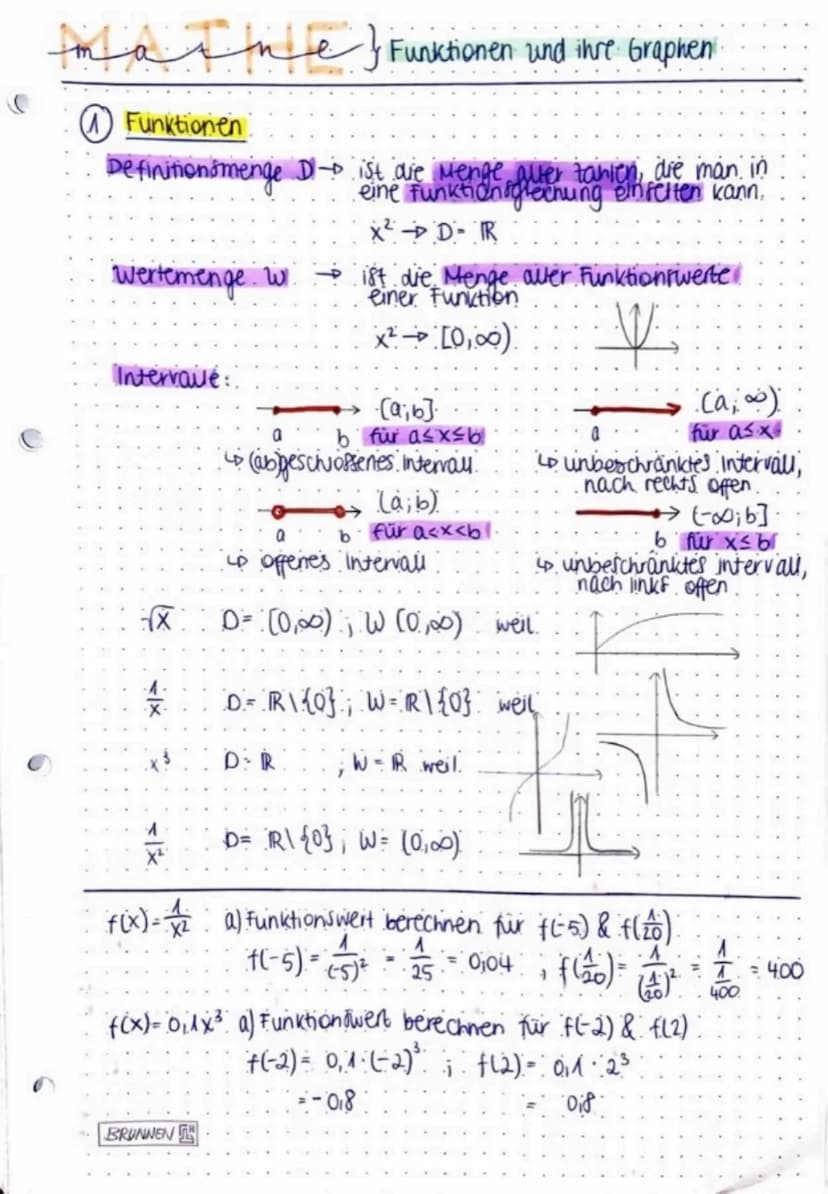 MATHE
mathe } Funktionen und ihre Graphen
① Funktionen
Definitionsmenge D → ist die Menge aller Zahlen, die man in
eine Funktionsgleichung einsetzen kann.
x² → D = ℝ
Wertemenge W → ist die Menge aller Funktionswerte
einer Funktion
x² → [0,∞)
Intervalle:
[a;b] [a;∞)
a b für a≤x≤b a für a≤x
↳ (ab)geschlossenes Intervall ↳ unbeschränktes Intervall,
nach rechts offen
(a;b) (-∞;b]
a b für a<x<b b für x≤b
↳ offenes Intervall ↳ unbeschränktes Intervall,
nach links offen
√x D= [0,∞) ; W [0,∞) weil
1/x D= ℝ\{0} ; W= ℝ\{0} weil
x³ D= ℝ , W = ℝ weil
1/x² D= ℝ\{0} ; W= (0,∞)
f(x)= 1/x² a) Funktionswert berechnen für f(-5) & f(1/20)
f(-5) = 1/(-5)² = 1/25 = 0,04 ; f(1/20) = 1/(1/20)² = 1/(1/400) = 400
f(x)= 0,1x³ a) Funktionswert berechnen für f(-2) & f(2)
f(-2) = 0,1·(-2)³ ; f(2) = 0,1 · 2³
= -0,8 = 0,8
BRUNNEN